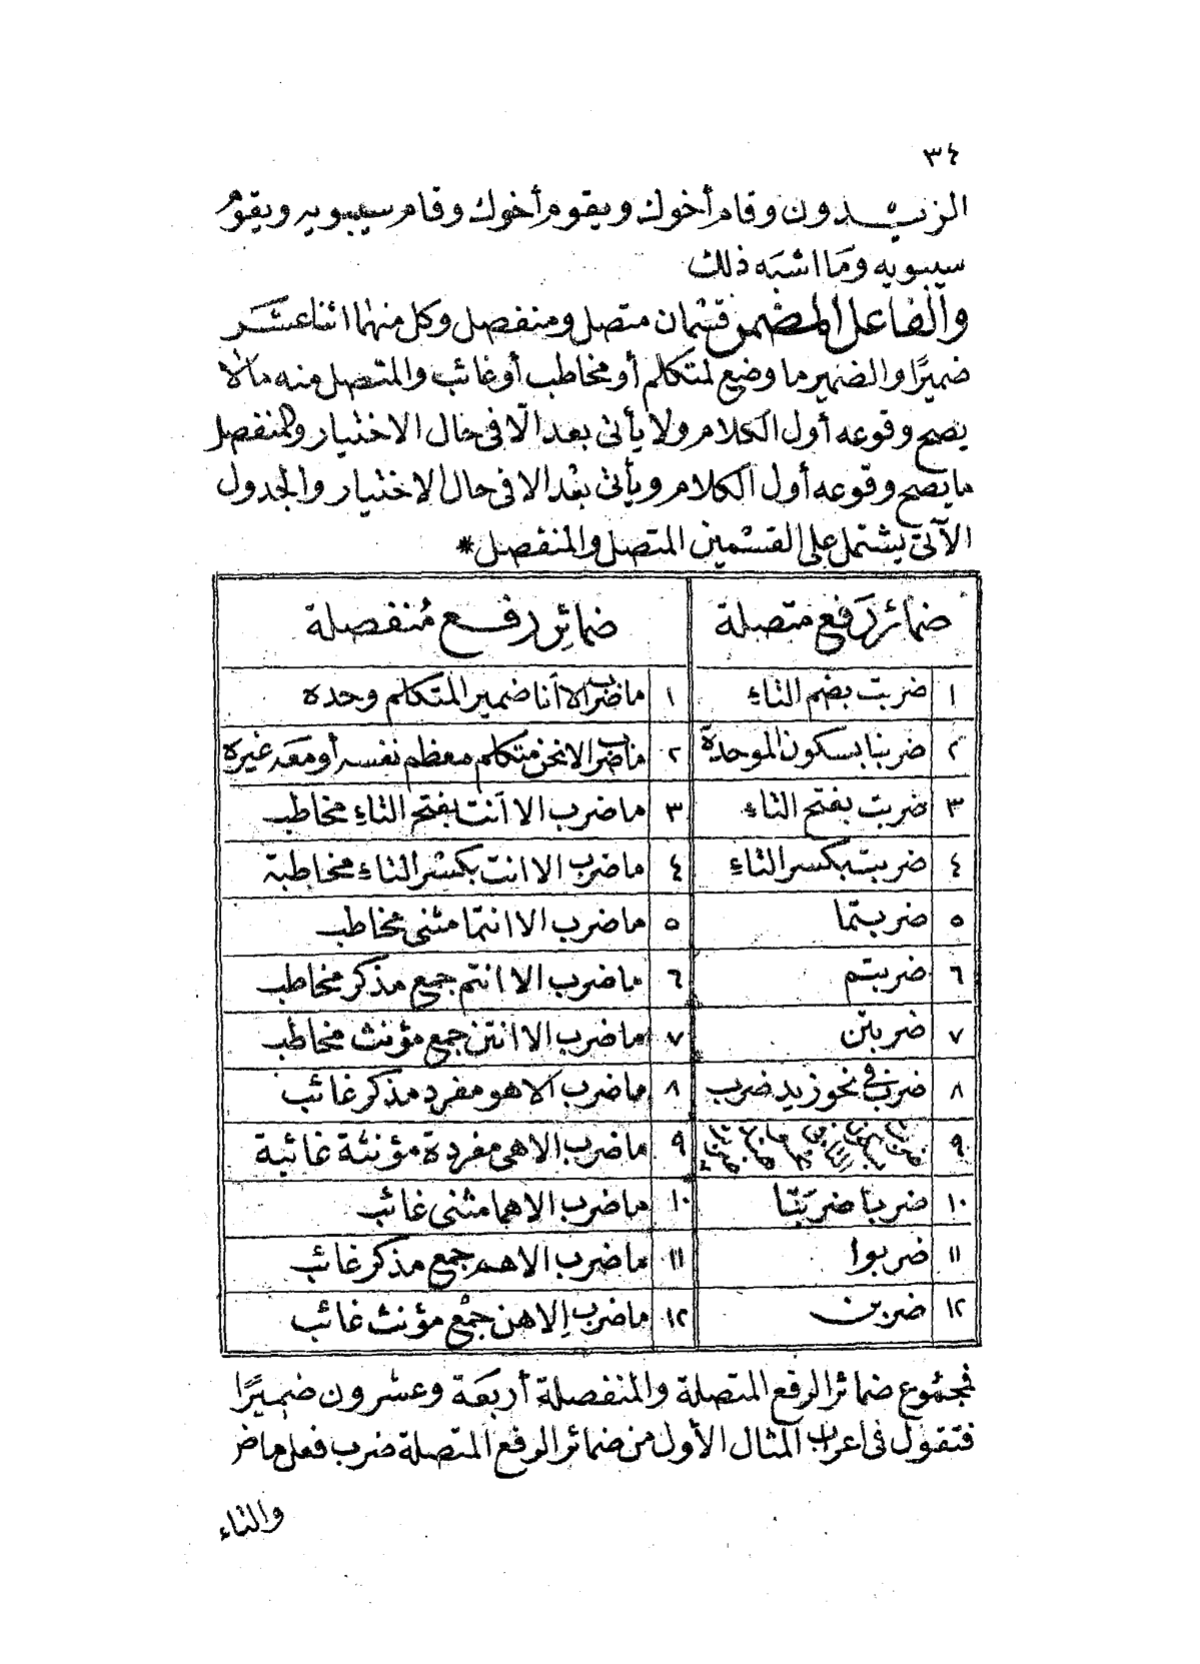 ٣٤
الزيدون وقام أخوك ويقوم أخوك وقام سيبويه ويقوم
سيبويه وما اشبه ذلك
والفاعل المضمر قسمان متصل ومنفصل وكل منهما اثنا عشر
ضميرًا والضمير ما وضع لمتكلم أو مخاطب أو غائب والمتصل منه مالا
يصح وقوعه أول الكلام ولا يأتى بعد الّا فى حال الاختيار والمنفصل
ما يصح وقوعه أول الكلام ويأتى بعْد الا فى حال الاختيار والجدول
الآتى يشتمل على القسمين المتصل والمنفصل*
ضمائر رَفع متصلة | ضمائِر رفع مُنفصلة
١ ضربت بضم التاءِ | ١ ماضرب الا أنا ضمير المتكلم وحده
٢ ضربنا بسكون الموحدة | ٢ ماضرب الا نحن متكلم معظم نفسه أو معَه غيره
٣ ضربت بفتح التاءِ | ٣ ماضرب الا أنت بفتح التاءِ مخاطب
٤ ضربت بكسر التاءِ | ٤ ماضرب الا انت بكسْر التاءِ مخاطبة
٥ ضربتما | ٥ ماضرب الا انتما مثنى مخاطب
٦ ضربتم | ٦ ماضرب الا انتم جمع مذكر مخاطب
٧ ضربتن | ٧ ماضرب الا انتن جمع مؤنث مخاطب
٨ ضرب فى نحو زيد ضرب | ٨ ماضرب الا هو مفرد مذكر غائب
٩ | ٩ ماضرب الا هى مفردة مؤنثة غائبة
١٠ ضربا ضربَتَا | ١٠ ماضرب الا هما مثنى غائب
١١ ضربوا | ١١ ماضرب الا هم جمع مذكر غائب
١٢ ضربن | ١٢ ماضرب إلا هن جمْع مؤنث غائب
فجمُوع ضمائر الرفع المتصلة والمنفصلة أربعَة وعشرون ضميرًا
فتقول فى اعراب المثال الأول من ضمائر الرفع المتصلة ضرب فعل ماض
والتاء